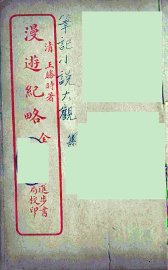 筆記小說大觀
集
清 王勝時著
漫遊紀略 全
進步書
局校印